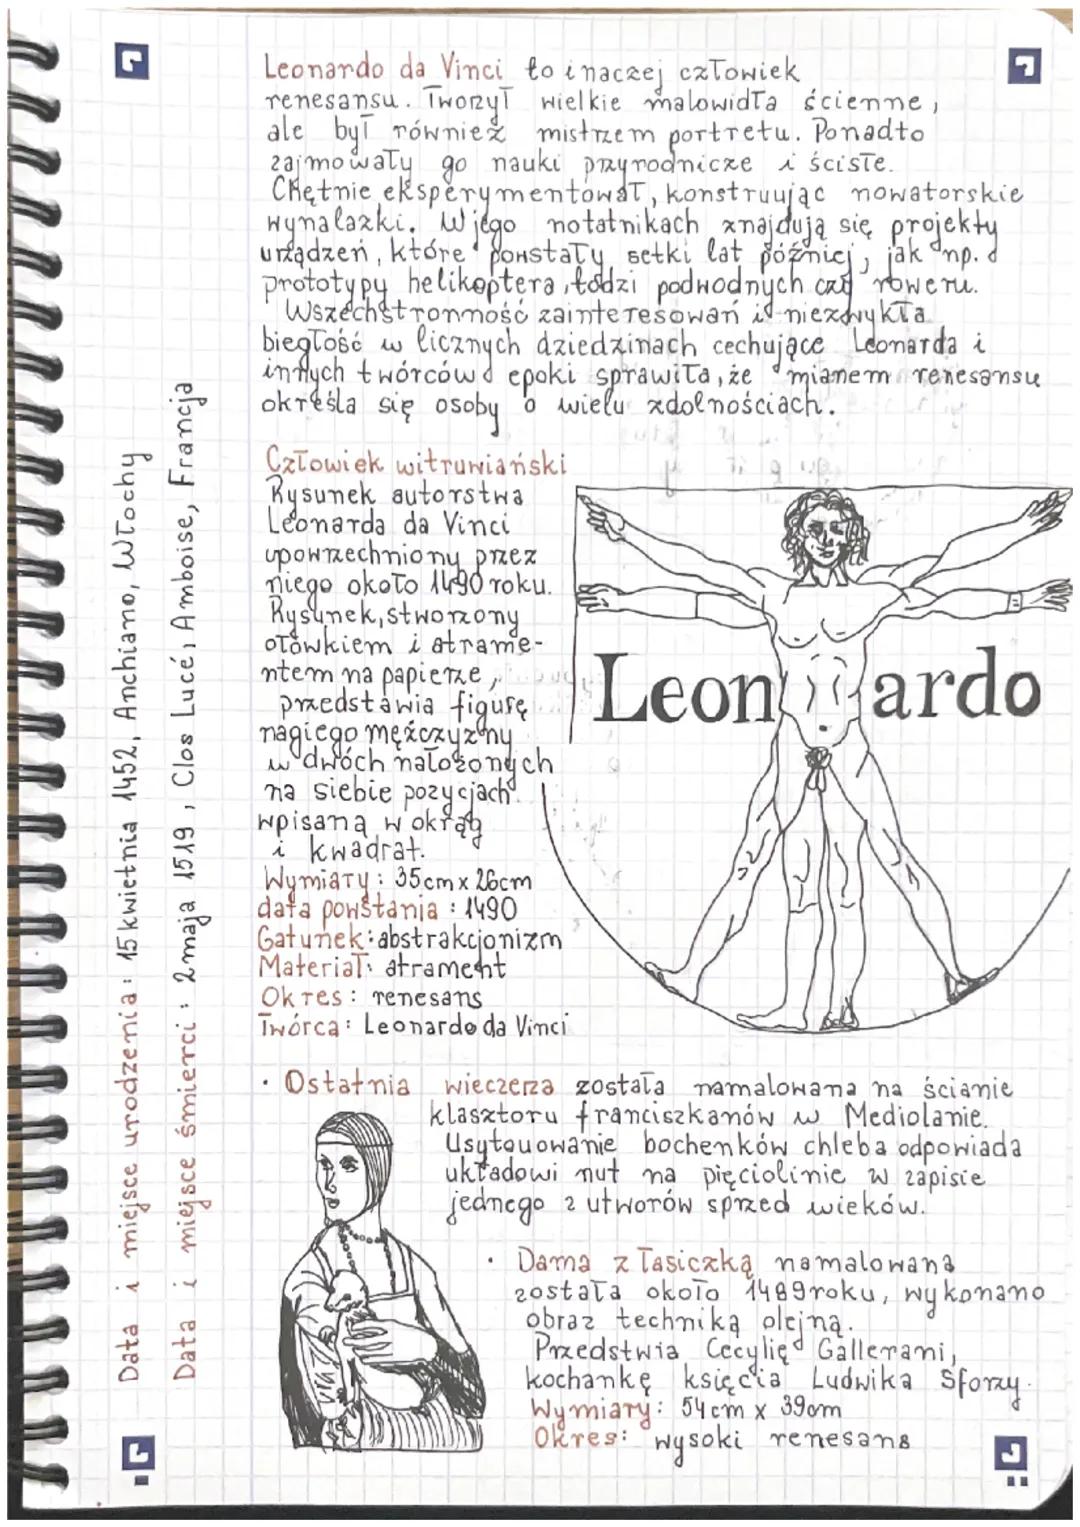 Leonardo da Vinci to inaczej człowiek
renesansu. Tworzył wielkie malowidła ścienne,
ale był również mistrzem portretu. Ponadto
zajmowały go nauki przyrodnicze i ścisłe.
Chętnie eksperymentował, konstruując nowatorskie
wynalazki. W jego notatnikach znajdują się projekty
urządzeń, które powstały setki lat później, jak np.
prototypy helikoptera, łodzi podwodnych czy roweru.
Wszechstronność zainteresowań i niezwykła
biegłość w licznych dziedzinach cechujące Leonarda i
innych twórców epoki sprawiła, że mianem renesansu
określa się osoby o wielu zdolnościach.
Człowiek witruwiański
Rysunek autorstwa
Leonarda da Vinci
upowrzechniony przez
niego około 1490 roku.
Rysunek, stworzony
ołówkiem i atrame-
ntem na papierze,
przedstawia figurę
nagiego mężczyzny
w dwóch nałożonych
na siebie pozycjach
wpisaną w okrąg
i kwadrat.
Wymiary: 35cm x 26cm
data powstania: 1490
Gatunek: abstrakcjonizm
Materiał: atrament
Okres: renesans
Twórca: Leonardo da Vinci
Leon ardo
• Ostatnia wieczerza została namalowana na ścianie
klasztoru franciszkanów w Mediolanie.
Usytouowanie bochenków chleba odpowiada
układowi nut na pięciolinie w zapisie
jednego z utworów sprzed wieków.
• Dama z łasiczką namalowana
została około 1489 roku, wykonano
obraz techniką olejną.
Przedstwia Cecylię Gallerani,
kochankę księcia Ludwika Sforzy.
Wymiary: 54 cm x 39cm
Okres: wysoki renesans
Data i miejsce urodzenia: 15 kwietnia 1452, Anchiano, Włochy
Data i miejsce śmierci: 2 maja 1519, Clos Lucé, Amboise, Francja